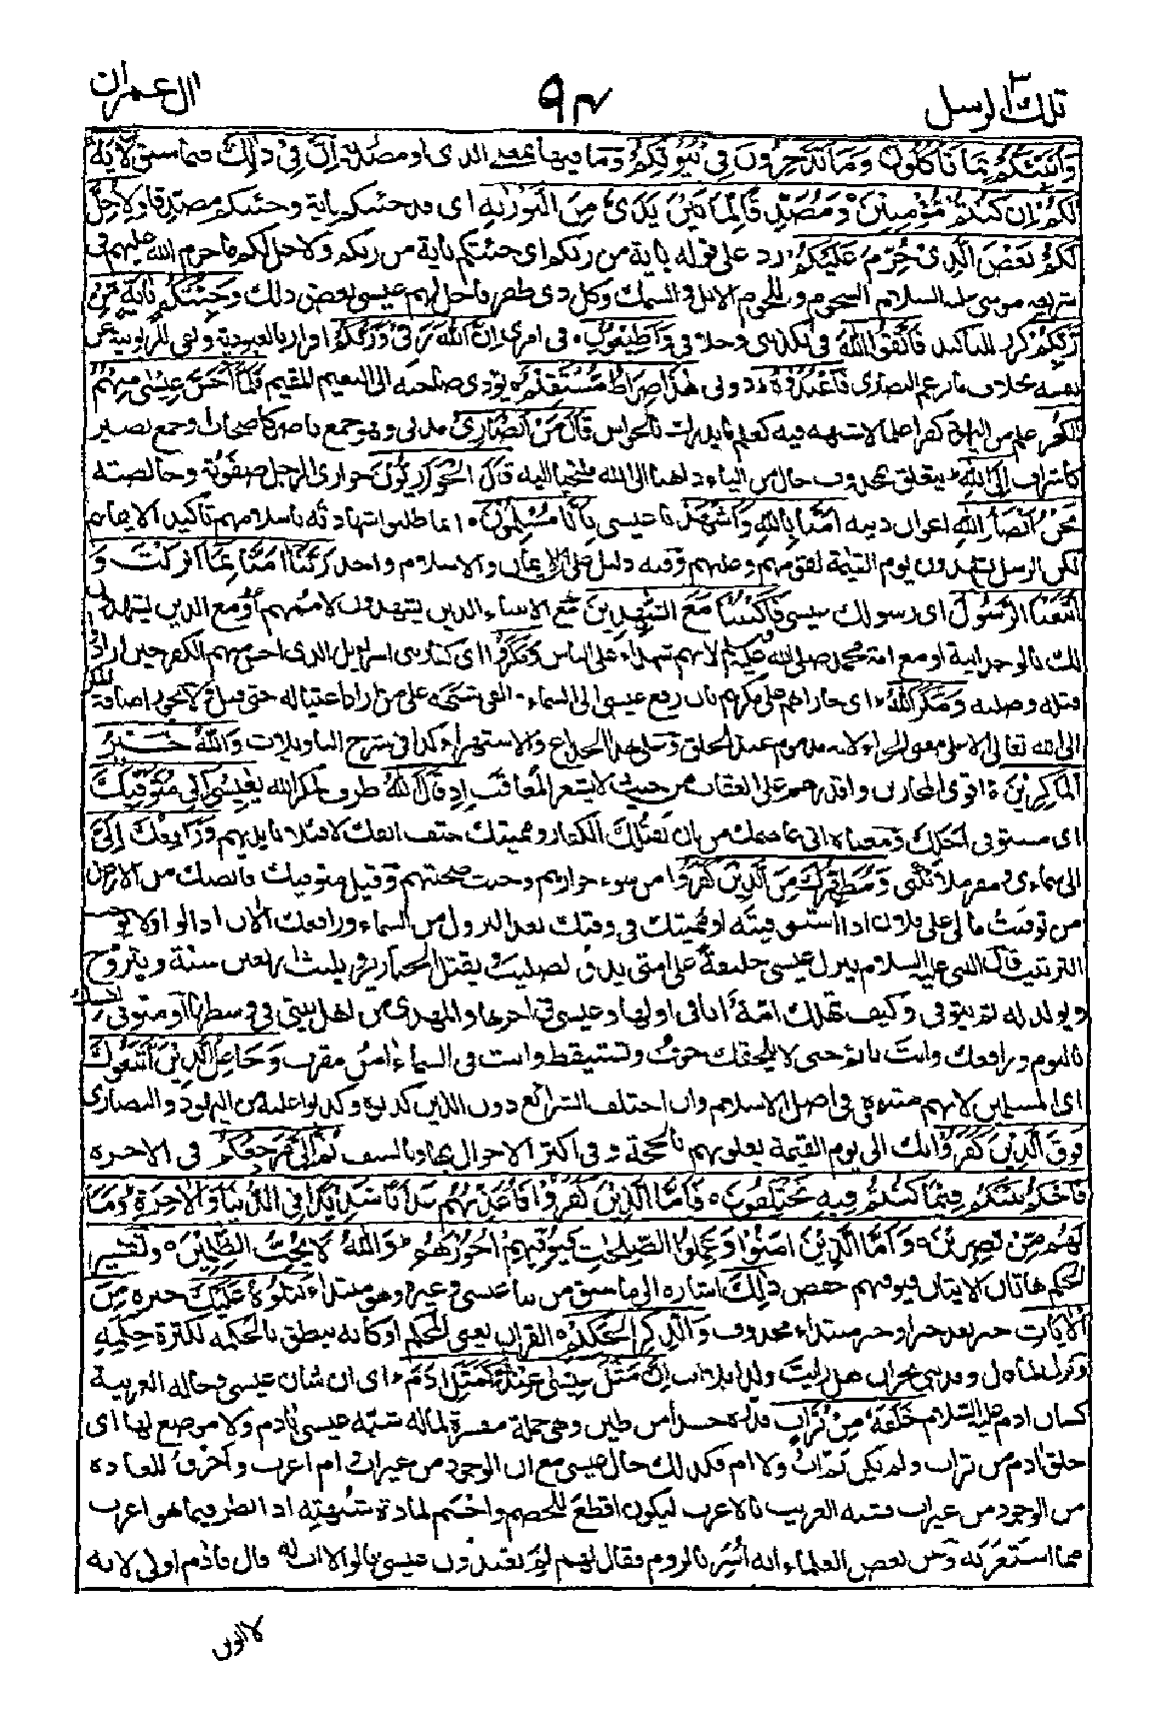 تلك الرسل ٣
٩٤
ال عمران
وَاُنَبِّئُكُمْ بِمَا تَاْكُلُوْنَ وَمَا تَدَّخِرُوْنَ فِيْ بُيُوْتِكُمْ وَمَا فيهما بمعنى الذى او مصدرية اِنَّ فِيْ ذٰلِكَ فيما سبق لَاٰيَةً
لَّكُمْ اِنْ كُنْتُمْ مُّؤْمِنِيْنَ وَمُصَدِّقًا لِّمَا بَيْنَ يَدَيَّ مِنَ التَّوْرٰىةِ اى قد جئتكم باية وجئتكم مصدقا وَلِاُحِلَّ
لَكُمْ بَعْضَ الَّذِيْ حُرِّمَ عَلَيْكُمْ رد على قوله باية من ربكم اى جئتكم باية من ربكم ولاحل لكم ما حرم الله عليهم فى
شريعة موسى عليه السلام الشحوم ولحوم الابل والسمك وكل ذى ظفر فاحل لهم عيسى بعض ذلك وَجِئْتُكُمْ بِاٰيَةٍ مِّنْ
رَّبِّكُمْ كرر للتاكيد فَاتَّقُوا اللّٰهَ فى تكذيبى وخلافى وَاَطِيْعُوْنِ فى امرى اِنَّ اللّٰهَ رَبِّيْ وَرَبُّكُمْ اقرار بالعبودية ونفى للربوبية عن
نفسه بخلاف ما يزعم النصارى فَاعْبُدُوْهُ دونى هٰذَا صِرَاطٌ مُّسْتَقِيْمٌ يؤدى صاحبه الى النعيم المقيم فَلَمَّا اَحَسَّ عِيْسٰى مِنْهُمُ
الْكُفْرَ علم من اليهود كفرا علما لا شبهة فيه كعلم ما يدرك بالحواس قَالَ مَنْ اَنْصَارِيْ مدنى وهو جمع ناصر كاصحاب او جمع نصير
كاشراف اِلَى اللّٰهِ يتعلق بمحذوف حال من الياء اى ذاهبا الى الله ملتجئا اليه قَالَ الْحَوَارِيُّوْنَ حوارى الرجل صفوته وخالصته
نَحْنُ اَنْصَارُ اللّٰهِ اعوان دينه اٰمَنَّا بِاللّٰهِ وَاشْهَدْ يا عيسى بِاَنَّا مُسْلِمُوْنَ انما طلبوا شهادته باسلامهم تاكيدا لايمانهم
لان الرسل يشهدون يوم القيمة لقومهم وعليهم وفيه دليل على ان الايمان والاسلام واحد رَبَّنَا اٰمَنَّا بِمَا اَنْزَلْتَ وَ
اتَّبَعْنَا الرَّسُوْلَ اى رسولك عيسى فَاكْتُبْنَا مَعَ الشّٰهِدِيْنَ مع الانبياء الذين يشهدون لاممهم او مع الذين يشهدون
لك بالوحدانية او مع امة محمد صلى الله عليه وسلم لانهم شهداء على الناس وَمَكَرُوْا اى كفار بنى اسرائيل الذى احس منهم الكفر حين ارادوا
قتله وصلبه وَمَكَرَ اللّٰهُ اى جازاهم على مكرهم بان رفع عيسى الى السماء والقى شبهه على من اراد اغتياله حتى قتل ولا يجوز اضافة المكر
الى الله تعالى الا على معنى الجزاء لانه مذموم عند الخلق وعلى هذا الخداع والاستهزاء كذا فى شرح التاويلات وَاللّٰهُ خَيْرُ
الْمٰكِرِيْنَ اقوى المجازين واقدرهم على العقاب من حيث لا يشعر المعاقب اِذْ قَالَ اللّٰهُ ظرف لمكر الله يٰعِيْسٰى اِنِّيْ مُتَوَفِّيْكَ
اى مستوفى اجلك ومعناه انى عاصمك من ان يقتلك الكفار ومميتك حتف انفك لا قتلا بايديهم وَرَافِعُكَ اِلَيَّ
الى سماءى ومقر ملائكتى وَمُطَهِّرُكَ مِنَ الَّذِيْنَ كَفَرُوْا من سوء جوارهم وخبث صحبتهم وقيل متوفيك قابضك من الارض
من توفيت مالى على فلان اذا استوفيته او مميتك فى وقتك بعد النزول من السماء ورافعك الان اذ الواو لا توجب
الترتيب قال النبى عليه السلام ينزل عيسى خليفة على امتى يدق الصليب ويقتل الخنازير ويلبث اربعين سنة ويتزوج
ويولد له ثم يتوفى وكيف تهلك امة انا فى اولها وعيسى فى اخرها والمهدى من اهل بيتى فى وسطها او متوفى نفسك
بالنوم ورافعك وانت نائم حتى لا يلحقك خوف وتستيقظ وانت فى السماء امن مقرب وَجَاعِلُ الَّذِيْنَ اتَّبَعُوْكَ
اى المسلمين لانهم متبعوه فى اصل الاسلام وان اختلفت الشرائع دون الذين كذبوه وكذبوا عليه من اليهود والنصارى
فَوْقَ الَّذِيْنَ كَفَرُوْا بك الى يوم القيمة يعلونهم بالحجة وفى اكثر الاحوال بها وبالسيف ثُمَّ اِلَيَّ مَرْجِعُكُمْ فى الاخرة
فَاَحْكُمُ بَيْنَكُمْ فِيْمَا كُنْتُمْ فِيْهِ تَخْتَلِفُوْنَ فَاَمَّا الَّذِيْنَ كَفَرُوْا فَاُعَذِّبُهُمْ عَذَابًا شَدِيْدًا فِي الدُّنْيَا وَالْاٰخِرَةِ وَمَا
لَهُمْ مِّنْ نّٰصِرِيْنَ وَاَمَّا الَّذِيْنَ اٰمَنُوْا وَعَمِلُوا الصّٰلِحٰتِ فَيُوَفِّيْهِمْ اُجُوْرَهُمْ وَاللّٰهُ لَا يُحِبُّ الظّٰلِمِيْنَ وتفسير
الحكم هاتان الايتان فيوفيهم حفص ذٰلِكَ اشارة الى ما سبق من نبا عيسى وغيره وهو مبتداء نَتْلُوْهُ عَلَيْكَ خبره مِنَ
الْاٰيٰتِ خبر بعد خبر او خبر مبتداء محذوف وَالذِّكْرِ الْحَكِيْمِ القران يعنى المحكم او كانه ينطق بالحكمة لكثرة حكمه
ونزل لما قال وفد بنى نجران هل رايت ولدا بلا اب اِنَّ مَثَلَ عِيْسٰى عِنْدَ اللّٰهِ كَمَثَلِ اٰدَمَ اى ان شان عيسى وحاله الغريبة
كشان ادم عليه السلام خَلَقَهٗ مِنْ تُرَابٍ قدره جسدا من طين وهى جملة مفسرة لحالة شبه عيسى بادم ولا موضع لها اى
خلق ادم من تراب ولم يكن ثم اب ولا ام فكذلك حال عيسى مع ان الوجود من غير اب وام اغرب واخرق للعادة
من الوجود من غير اب فشبه الغريب بالاغرب ليكون اقطع للخصم واحسم لمادة شبهته اذا نظر فيما هو اغرب
مما استغربه وعن بعض العلماء انه اسر بالروم فقال لهم لم تعبدون عيسى قالوا لانه لا اب له قال فادم اولى لانه
لا ابوين